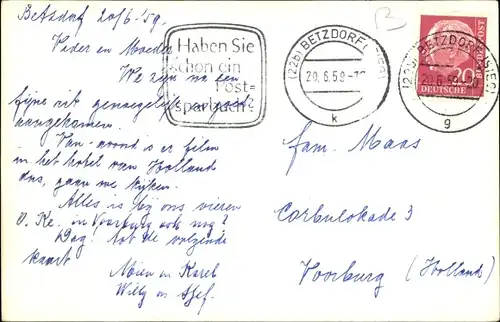 Betzdorf 20/6 '59.
Vader en Moeder
We zijn na een
fijne rit genoegelijk goed
aangekomen.
Van-avond is er film
in het hotel van Holland
dus, gaan we kijken.
Alles is bij ons vieren
O. Ke. in Voorburg ook nog?
Dag! tot de volgende
kaart
Mien en Karel
Willy en Jef.
Haben Sie
schon ein
Post=
sparbuch?
(22b) BETZDORF (SIEG)
20.6.59
k
(22b) BETZDORF (SIEG)
20.6.59
g
20
DEUTSCHE
BUNDESPOST
fam. Maas
Corbulokade 3
Voorburg (Holland)